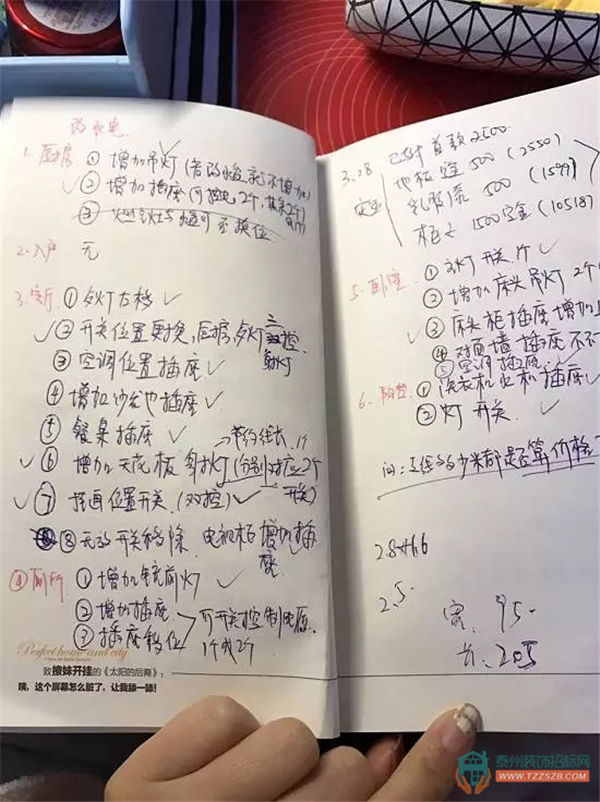 改水电
1. 厨房 ① 增加吊灯 (若改造就不增加)
② 增加插座
③ 燃气灶与
换位
2. 入户 无
3. 客厅 ① 灯右移
② 开关位置更换, 后搭, 灯 三 双控
射灯
③ 空调位置插座
④ 增加沙发边插座
⑤ 餐桌插座
⑥ 增加天花板射灯 (分别对应2个
开关)
⑦ 挂画位置开关 (双控)
⑧ 无效开关移除 电视柜增加插
座
④ 厕所 ① 增加镜前灯
② 增加插座
③ 插座移位
可开关控制电源
1个或2个
Perfect home and city
致撩妹开挂的《太阳的后裔》:
咦,这个屏幕怎么脏了,让我舔一舔!
3.28 已付首款 2500
定金
地板定 500 (2550)
乳胶漆 500 (1599)
柜子 1500定金 (10518)
5. 卧室 ① 灯开关
② 增加床头吊灯 2个
③ 床头柜插座增加
④ 对面墙插座不
⑤ 空调插座
6. 阳台 ① 洗衣机 插座
② 灯开关
问:走线的多少米都是否算价格
28
2.5
宽: 95
长: 205
泰州装饰招标网
WWW.TZZSZB.COM